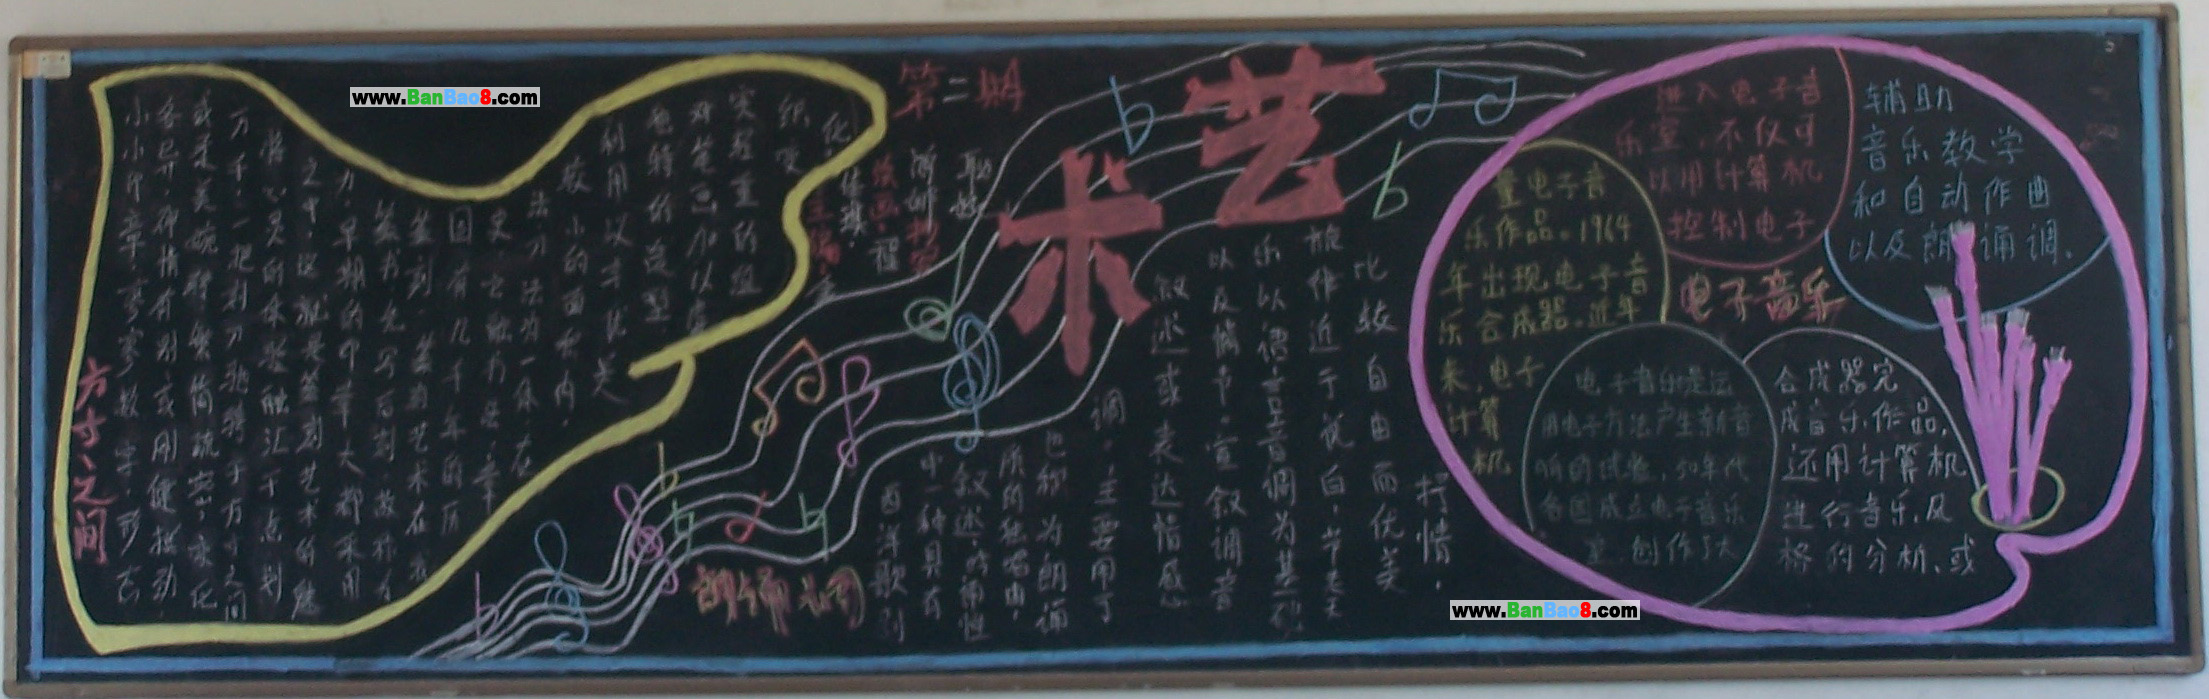 www.BanBao8.com
方寸之间
小小印章,寥寥数字,形态
各异,神情有别,或刚健挺劲
或柔美婉转,繁简疏密,变化
万千,一把刻刀驰骋于方寸之间
将心灵的体验融汇于点划
之中,这就是篆刻艺术的魅
力,早期的印章大都采用
篆书先写后刻,故称为
篆刻,篆刻艺术在我
国有几千年的历
史,它融书法,章
法,刀法为一体,在
较小的面积内,
利用以字优美
色特的造型
对笔画加以
突轻重的组
织,变
化
第二期
艺术
朗诵调
西洋歌剧
中一种具有
叙述的诵性
质的独唱曲,
也称为朗诵
调,主要用于
叙述或表达情感
以及情节,宣叙调音
乐以语言音调为基础
旋作近于说白,节奏
比较自由而优美
抒情.
电子音乐
电子音乐是运
用电子方法产生新音
响的试验,50年代
各国成立电子音乐
室,创作了大
量电子音
乐作品.1964
年出现电子音
乐合成器.近年
来,电子
计算
机
进入电子音
乐室,不仅可
以用计算机
控制电子
合成器完
成音乐作品,
还用计算机
进行音乐及
格的分析、或
辅助
音乐教学
和自动作曲
以及朗诵调.
www.BanBao8.com